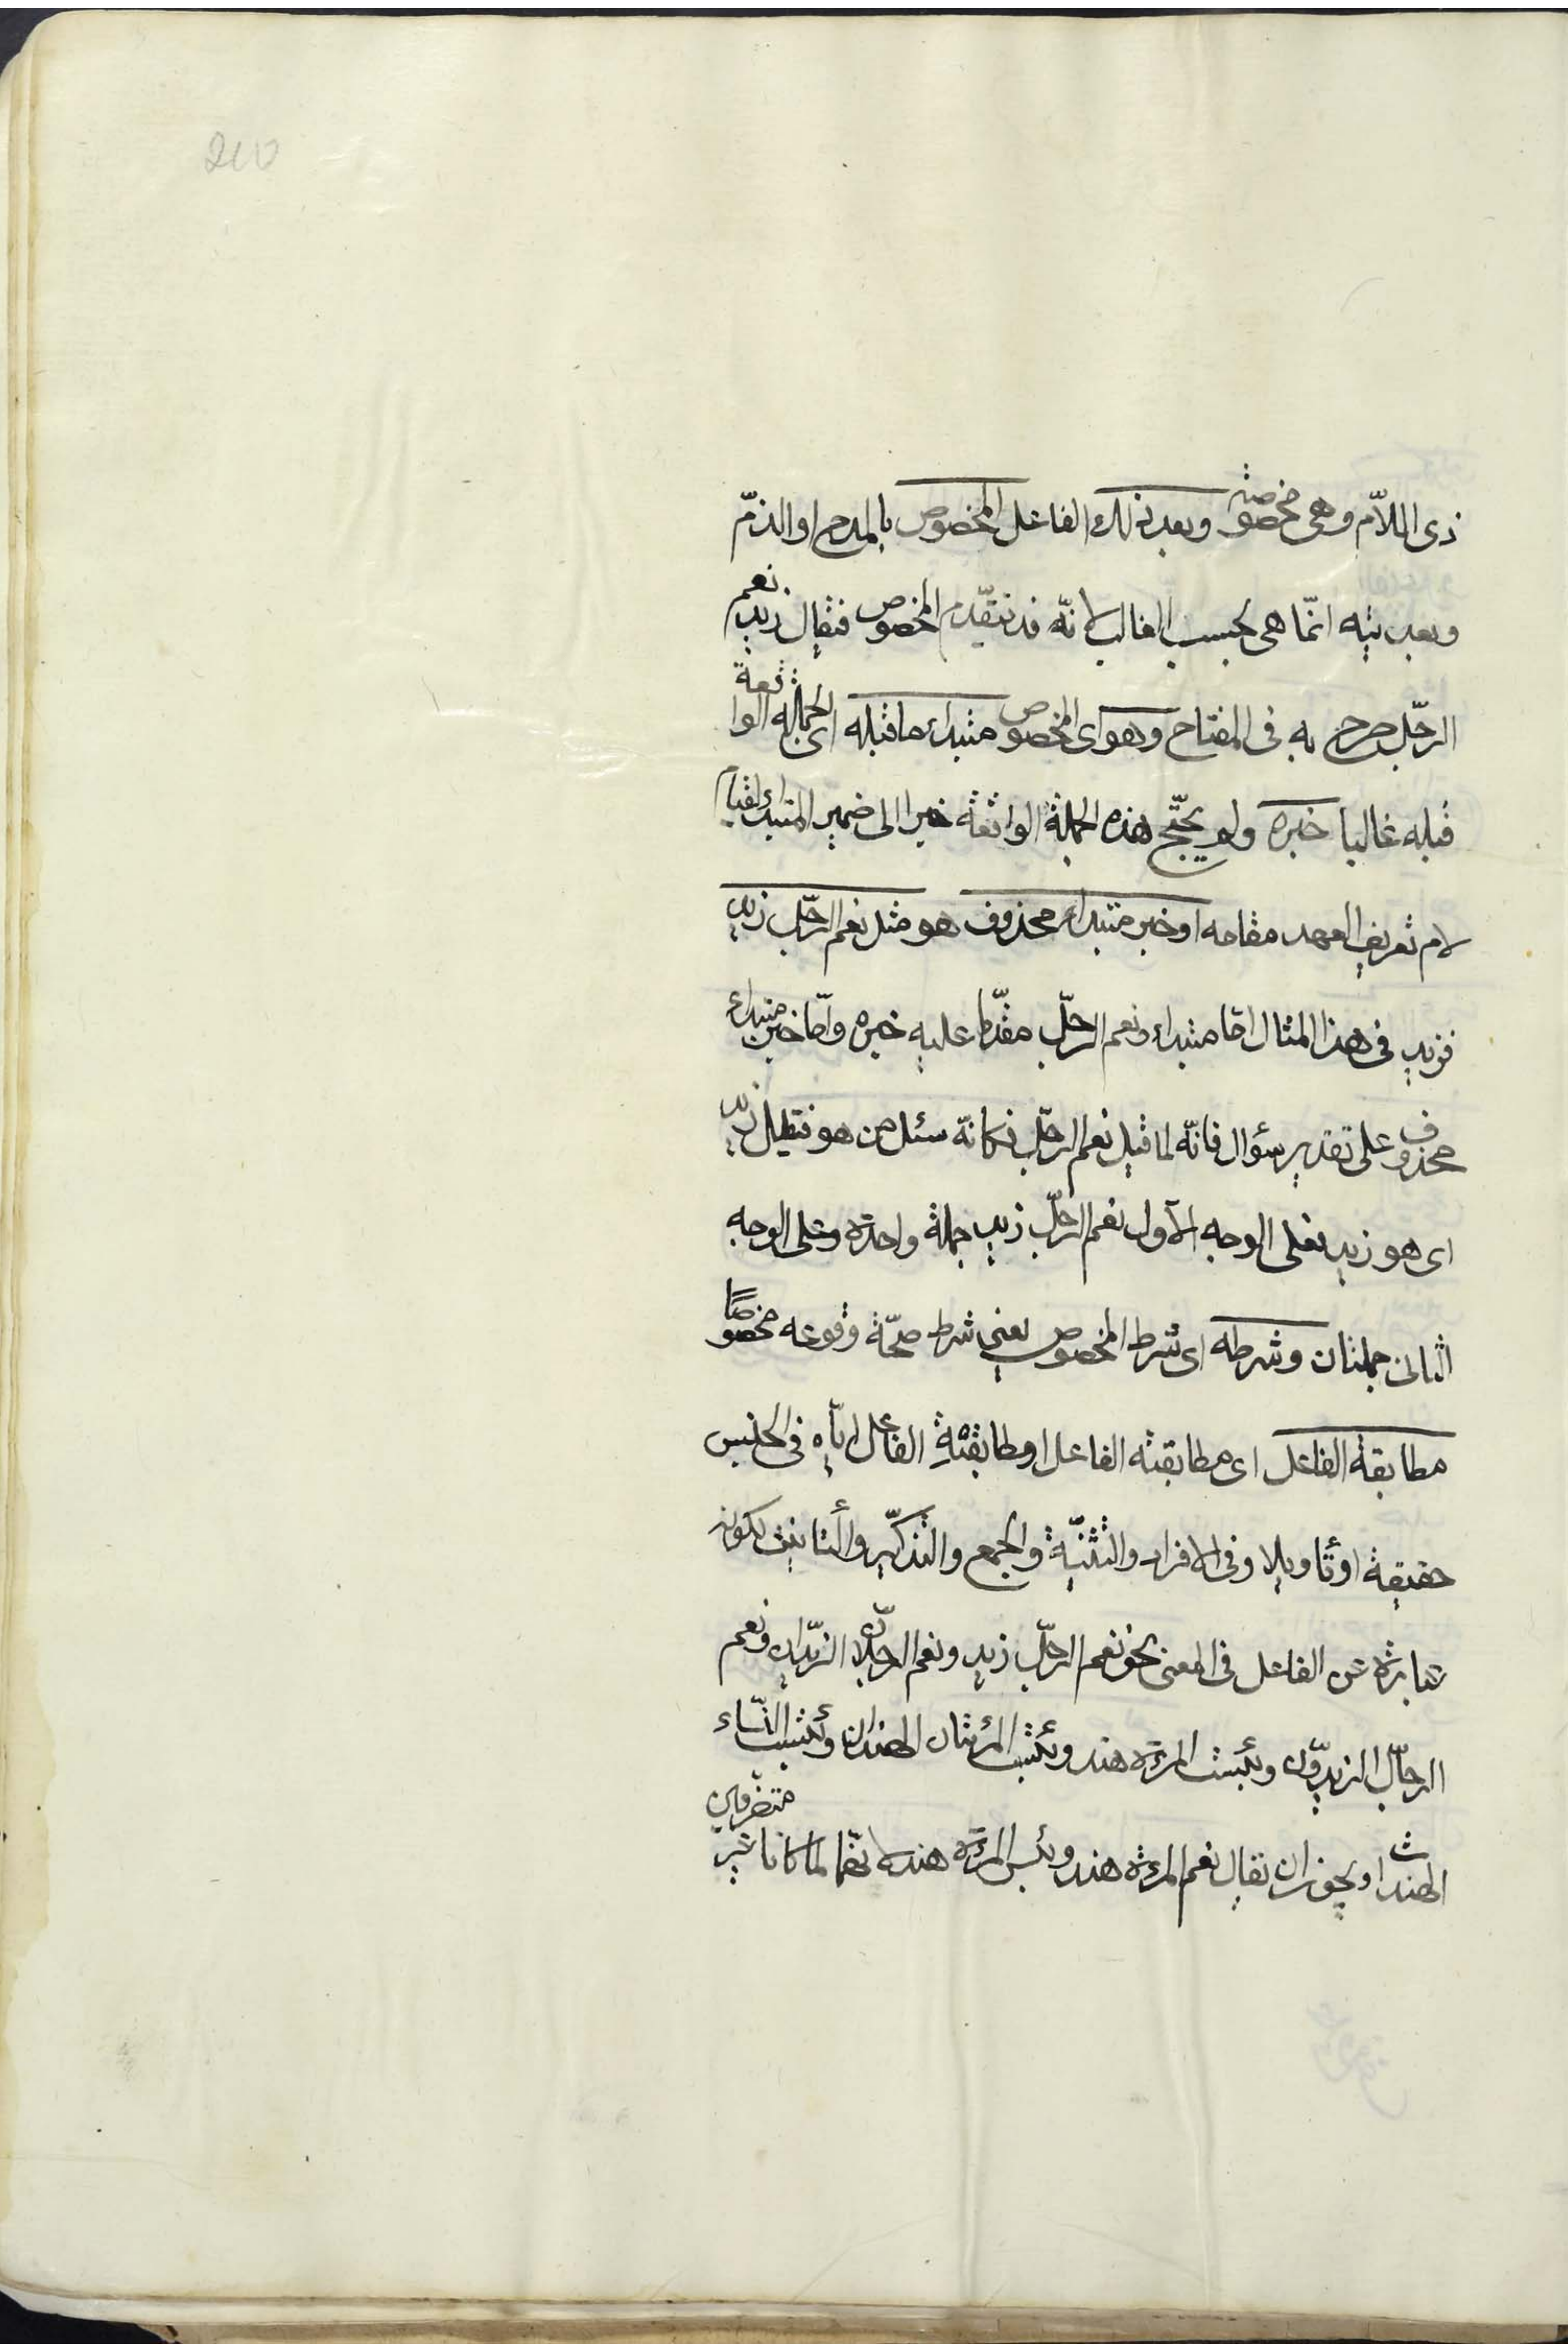 200
ذى اللاّم وهى مخصوصة وبعد ذلك الفاعل المخصوص بالمدح او الذمّ
وبعديته انّما هى بحسب الغالب لانّه قد تتقدّم المخصوص فتقال زيد نعم
الرجّل صرح به فى المفتاح وهو اى المخصوص مبتداء ما قبله اى الجملة الواقعة
قبله غالبا خبره ولم يحتّج هذه الجملة الواقعة خبرا الى ضمير المبتداء لقيام
لام تعريف العهد مقامه او خبر مبتداء محذوف هو مثل نعم الرجّل زيد
فزيد فى هذا المثال امّا مبتداء ونعم الرجّل مقدّما عليه خبره وامّا خبر مبتداء
محذوف على تقدير سؤال فانّه لما قيل نعم الرجّل فكانّه سئل من هو فقيل زيد
اى هو زيد فعلى الوجه الاّول نعم الرجّل زيد جملة واحدة وعلى الوجه
الثانى جملتان وشرطه اى شرط المخصوص يعنى شرط صحّة وقوعه مخصوصًا
مطابقة الفاعل اى مطابقته الفاعل او مطابقةِ الفاعل ايّاه فى الجنس
حقيقة او تأويلا وفى الافراد والتثنيّة والجمع والتذكّير والتأنيث لكونه
عبارة عن الفاعل فى المعنى نحو نعم الرجّل زيد ونعم الرجلّان الزيّدان ونعم
الرجّال الزيدّون وبئست المرءة هند وبئست المرءتان الهندان وبئست النّساء
الهندات ويجوز ان تقال نعم المرءة هند وبئس المرءة هند لانّهما لما كانا غير متصرفين